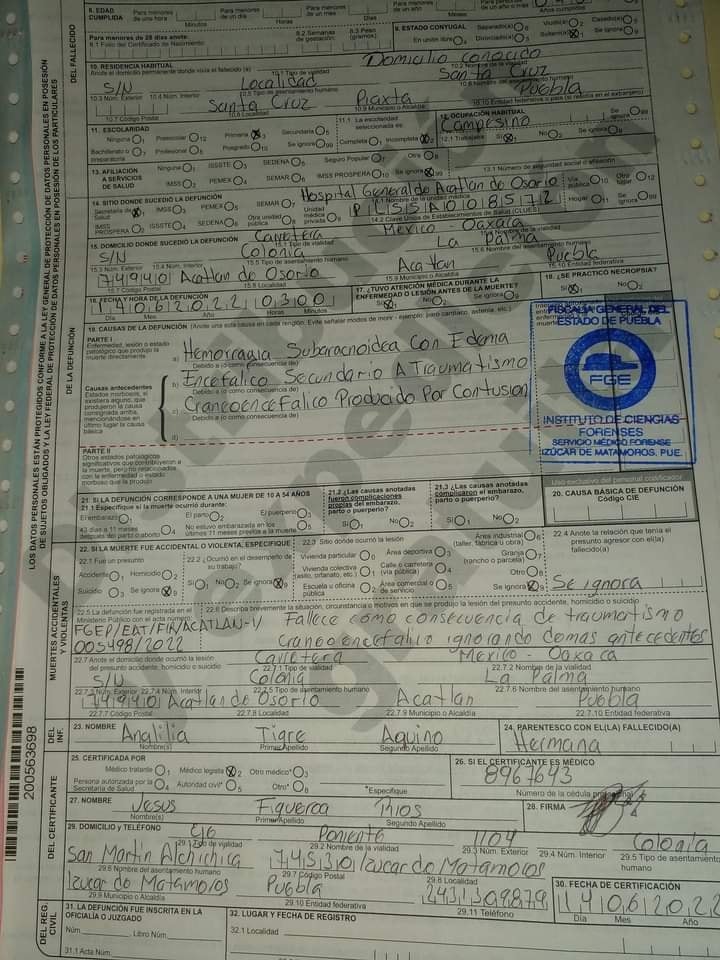 8. EDAD CUMPLIDA
Minutos Horas Días
Para menores de 28 días anote:
8.1 Folio del Certificado de Nacimiento
8.2 Semanas de gestación:
8.3 Peso (gramos)
9. ESTADO CONYUGAL
En unión libre
Soltero(a)
Se ignora
DEL FALLECIDO
10. RESIDENCIA HABITUAL
Anote el domicilio permanente donde vivía el fallecido(a)
Domicilio conocido
10.1 Tipo de vialidad
10.2 Nombre de la vialidad
S/N Localidad Santa Cruz
10.3 Núm. Exterior 10.4 Núm. Interior 10.5 Tipo de asentamiento humano 10.6 Nombre del asentamiento humano
Santa Cruz Piaxta Puebla
10.7 Código Postal 10.8 Localidad 10.9 Municipio o Alcaldía 10.10 Entidad federativa o país (si residía en el extranjero)
11. ESCOLARIDAD
Ninguna Preescolar Primaria Secundaria
Bachillerato o Preparatoria Profesional Posgrado Se ignora
11.1 La escolaridad seleccionada es:
Completa Incompleta
12. OCUPACIÓN HABITUAL
Campesino
12.1 Trabajaba Sí No Se ignora
13. AFILIACIÓN A SERVICIOS DE SALUD
Ninguna ISSSTE SEDENA Seguro Popular Otra
IMSS PEMEX SEMAR IMSS PROSPERA Se ignora
13.1 Número de seguridad social o afiliación
14. SITIO DONDE SUCEDIÓ LA DEFUNCIÓN
Hospital General de Acatlan de Osorio
14.1 Nombre de la unidad médica
Secretaría de Salud IMSS PEMEX SEMAR Unidad médica privada
IMSS PROSPERA ISSSTE SEDENA Otra unidad pública
14.2 Clave Única de Establecimientos de Salud (CLUES)
Vía pública Otro lugar
Hogar Se ignora
15. DOMICILIO DONDE SUCEDIÓ LA DEFUNCIÓN
Carretera Mexico - Oaxaca
15.1 Tipo de vialidad
S/N Colonia La Palma
15.3 Núm. Exterior 15.4 Núm. Interior 15.5 Tipo de asentamiento humano 15.6 Nombre del asentamiento humano
74940 Acatlan de Osorio Acatlan Puebla
15.7 Código Postal 15.8 Localidad 15.9 Municipio o Alcaldía 15.10 Entidad federativa
16. FECHA Y HORA DE LA DEFUNCIÓN
14 06 2022 0300
Día Mes Año Horas Minutos
17. ¿TUVO ATENCIÓN MÉDICA DURANTE LA ENFERMEDAD O LESIÓN ANTES DE LA MUERTE?
Sí No Se ignora
18. ¿SE PRACTICÓ NECROPSIA?
Sí No
DE LA DEFUNCIÓN
19. CAUSAS DE LA DEFUNCIÓN (Anote una sola causa en cada renglón. Evite señalar modos de morir - ejemplo: paro cardiaco, astenia, etc.)
PARTE I
Enfermedad, lesión o estado patológico que produjo la muerte directamente
a) Hemorragia Subaracnoidea Con Edema
Debido a (o como consecuencia de)
Causas antecedentes
Estados morbosos, si existiera alguno, que produjeron la causa consignada arriba, mencionándose en último lugar la causa básica
b) Encefalico Secundario A Traumatismo
Debido a (o como consecuencia de)
c) Craneoencefalico Producido Por Contusion
Debido a (o como consecuencia de)
d)
PARTE II
Otros estados patológicos significativos que contribuyeron a la muerte, pero no relacionados con la enfermedad o estado morboso que la produjo
FISCALÍA GENERAL DEL
ESTADO DE PUEBLA
FGE
INSTITUTO DE CIENCIAS
FORENSES
SERVICIO MÉDICO FORENSE
IZÚCAR DE MATAMOROS, PUE.
Uso exclusivo del personal codificador
20. CAUSA BÁSICA DE DEFUNCIÓN
Código CIE
21. SI LA DEFUNCIÓN CORRESPONDE A UNA MUJER DE 10 A 54 AÑOS
21.1 Especifique si la muerte ocurrió durante:
El embarazo El parto El puerperio
43 días a 11 meses después del parto o aborto
No estuvo embarazada en los últimos 11 meses previos a la muerte
21.2 ¿Las causas anotadas fueron complicaciones propias del embarazo, parto o puerperio?
Sí No
21.3 ¿Las causas anotadas complicaron el embarazo, parto o puerperio?
Sí No
MUERTES ACCIDENTALES Y VIOLENTAS
22. SI LA MUERTE FUE ACCIDENTAL O VIOLENTA, ESPECIFIQUE
22.1 Fue un presunto
Accidente Homicidio
Suicidio Se ignora
22.2 ¿Ocurrió en el desempeño de su trabajo?
Sí No Se ignora
22.3 Sitio donde ocurrió la lesión
Vivienda particular Área deportiva Área industrial (taller, fábrica u obra)
Vivienda colectiva (asilo, orfanato, etc.) Calle o carretera (vía pública) Granja (rancho o parcela)
Escuela u oficina pública Área comercial o de servicio Otro
Se ignora
22.4 Anote la relación que tenía el presunto agresor con el(la) fallecido(a)
Se ignora
22.5 La defunción fue registrada en el Ministerio Público con el acta número
FGEP/EAT/FIN/ACATLAN-V
005498/2022
22.6 Describa brevemente la situación, circunstancia o motivos en que se produjo la lesión del presunto accidente, homicidio o suicidio
Fallece como consecuencia de traumatismo
craneoencefalico ignorando demas antecedentes
22.7 Anote el domicilio donde ocurrió la lesión del presunto accidente, homicidio o suicidio
Carretera Mexico - Oaxaca
22.7.1 Tipo de vialidad 22.7.2 Nombre de la vialidad
S/N Colonia La Palma
22.7.3 Núm. Exterior 22.7.4 Núm. Interior 22.7.5 Tipo de asentamiento humano 22.7.6 Nombre del asentamiento humano
74940 Acatlan de Osorio Acatlan Puebla
22.7.7 Código Postal 22.7.8 Localidad 22.7.9 Municipio o Alcaldía 22.7.10 Entidad federativa
DEL INF.
23. NOMBRE
Analilia Tigre Aquino
Nombre(s) Primer Apellido Segundo Apellido
24. PARENTESCO CON EL(LA) FALLECIDO(A)
Hermana
DEL CERTIFICANTE
25. CERTIFICADA POR
Médico tratante Médico legista Otro médico*
Persona autorizada por la Secretaría de Salud Autoridad civil* Otro*
*Especifique
26. SI EL CERTIFICANTE ES MÉDICO
8967643
Número de la cédula profesional
27. NOMBRE
Jesus Figueroa Rios
Nombre(s) Primer Apellido Segundo Apellido
28. FIRMA
29. DOMICILIO Y TELÉFONO
Poniente 1104 Colonia
29.1 Tipo de vialidad 29.2 Nombre de la vialidad 29.3 Núm. Exterior 29.4 Núm. Interior 29.5 Tipo de asentamiento humano
San Martin Alchichica 74530 Izucar de Matamoros
29.6 Nombre del asentamiento humano 29.7 Código Postal 29.8 Localidad
Izucar de Matamoros Puebla
29.9 Municipio o Alcaldía 29.10 Entidad federativa 29.11 Teléfono
30. FECHA DE CERTIFICACIÓN
14 06 2022
Día Mes Año
DEL REG. CIVIL
31. LA DEFUNCIÓN FUE INSCRITA EN LA OFICIALÍA O JUZGADO
Núm. Libro Núm.
31.1 Acta Núm.
32. LUGAR Y FECHA DE REGISTRO
32.1 Localidad
Día Mes Año
200563698
LOS DATOS PERSONALES ESTÁN PROTEGIDOS CONFORME A LA LEY GENERAL DE PROTECCIÓN DE DATOS PERSONALES EN POSESIÓN
DE SUJETOS OBLIGADOS Y LA LEY FEDERAL DE PROTECCIÓN DE DATOS PERSONALES EN POSESIÓN DE LOS PARTICULARES